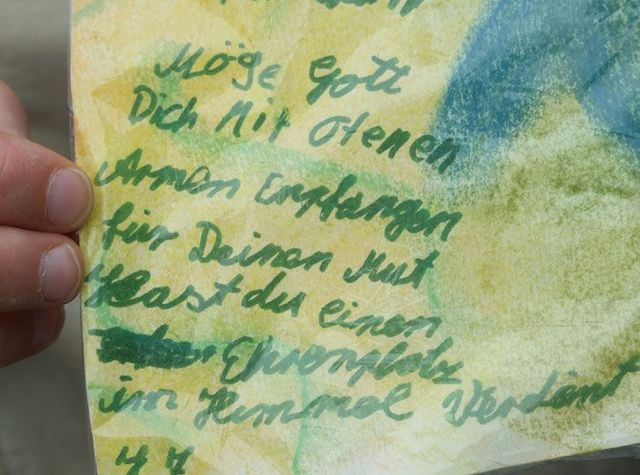 Möge Gott
Dich Mit Ofenen
Armen Empfangen
für Deinen Mut
Hast du einen
Ehrenplatz
im Himmel Verdänt